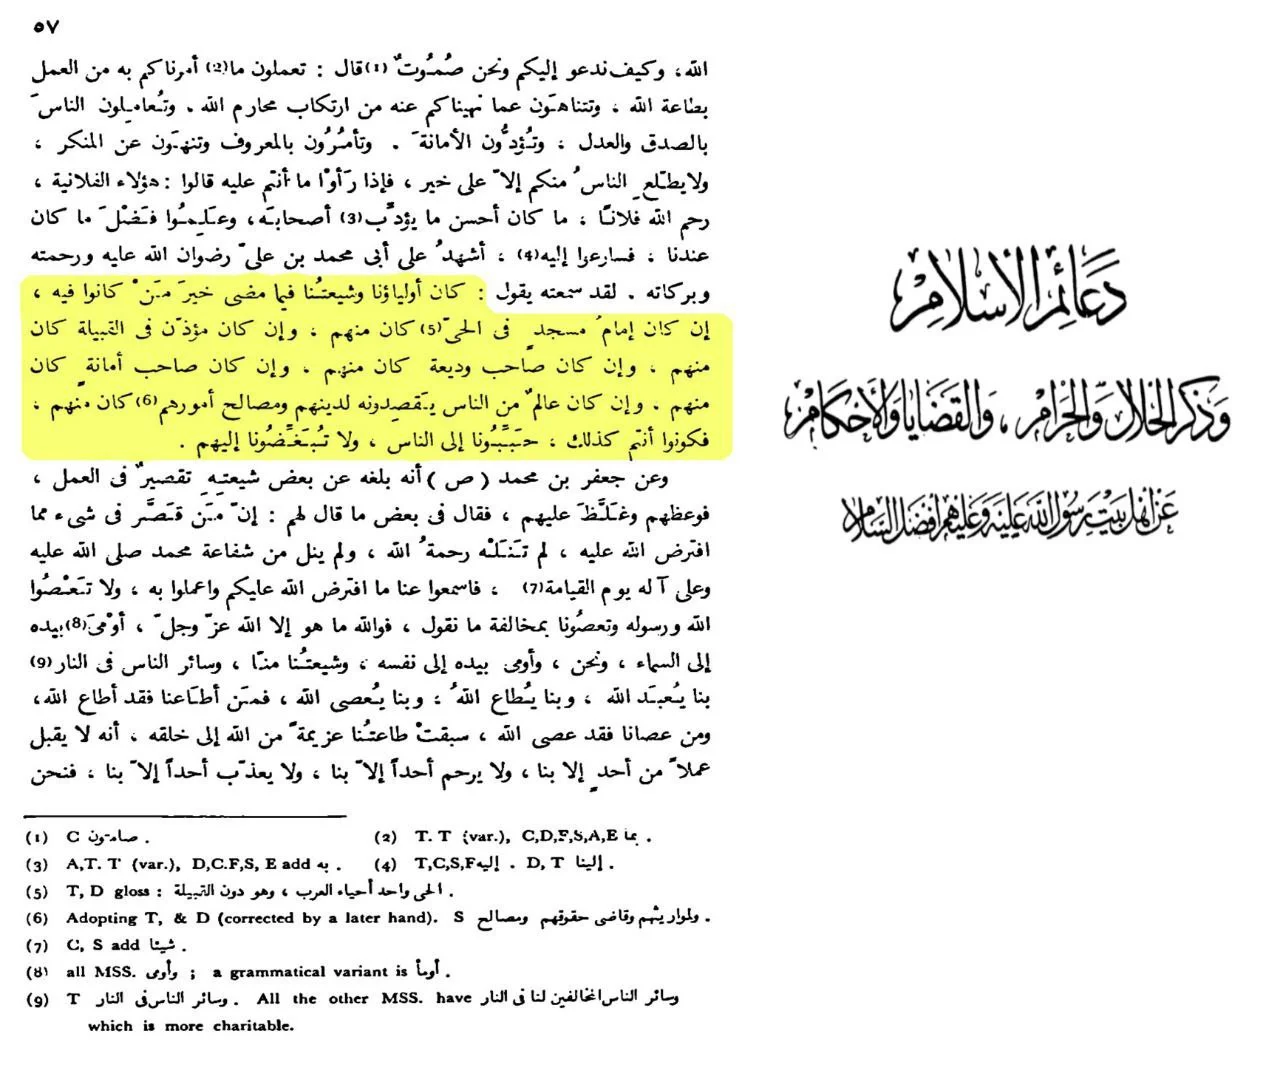 ٥٧
الله، وكيف ندعو إليكم ونحن صُمُوتٌ (١) قال : تعملون ما (2) أمرناكم به من العمل
بطاعة الله ، وتتناهَون عما نهيناكم عنه من ارتكاب محارم الله . وتُعامِلون الناسَ
بالصدق والعدل ، وتُؤدُّون الأمانةَ . وتأمُرُون بالمعروف وتنهَون عن المنكر ،
ولا يطّلع الناسُ منكم إلاّ على خير ، فإذا رَأَوْا ما أنتم عليه قالوا : هؤلاء الفلانية ،
رحم الله فلانًا ، ما كان أحسن ما يؤدِّب (3) أصحابَه ، وعَلِمُوا فَضْلَ ما كان
عندنا ، فسارعوا إليه (4) ، أشهدُ على أبى محمد بن علىّ رضوان الله عليه ورحمته
وبركاته . لقد سمعته يقول : كان أولياؤنا وشيعتُنا فيما مضى خيرَ مَنْ كانوا فيه ،
إن كان إمامُ مسجدٍ فى الحىّ (5) كان منهم ، وإن كان مؤذّن فى القبيلة كان
منهم ، وإن كان صاحب وديعة كان منهم ، وإن كان صاحب أمانةٍ كان
منهم . وإن كان عالمٌ من الناس يَقصِدونه لدينهم ومصالح أمورهم (6) كان منهم ،
فكونوا أنتم كذلك ، حَبِّبُونا إلى الناس ، ولا تُبَغِّضُونا إليهم .
وعن جعفر بن محمد ( ص ) أنه بلغه عن بعض شيعتِهِ تقصيرٌ فى العمل ،
فوعظهم وغَلَّظَ عليهم ، فقال فى بعض ما قال لهم : إنّ مَن قَصَّر فى شىء مما
افترض الله عليه ، لم تَنَلْه رحمةُ الله ، ولم ينل من شفاعة محمد صلى الله عليه
وعلى آله يوم القيامة (7) ، فاسمعوا عنا ما افترض الله عليكم واعملوا به ، ولا تَعْصُوا
الله ورسوله وتعصُونا بمخالفة ما نقول ، فوالله ما هو إلا الله عزّ وجلّ ، أوْمىَ (8) بيده
إلى السماء ، ونحن ، وأومى بيده إلى نفسه ، وشيعتُنا منّا ، وسائر الناس فى النار (9)
بنا يُعبَد الله ، وبنا يُطاع اللهُ ، وبنا يُعصى الله ، فمَن أطاعنا فقد أطاع الله،
ومن عصانا فقد عصى الله ، سبقتْ طاعتُنا عزيمةً من الله إلى خلقه ، أنه لا يقبل
عملاً من أحدٍ إلا بنا ، ولا يرحم أحداً إلاّ بنا ، ولا يعذّب أحداً إلاّ بنا ، فنحن
(1) C صامتون .
(2) T. T (var.), C,D,F,S,A,E بما .
(3) A,T. T (var.), D,C.F,S, E add به .
(4) T,C,S,F إليه . D, T إلينا .
(5) T, D gloss : الحى واحد أحياء العرب ، وهو دون القبيلة .
(6) Adopting T, & D (corrected by a later hand). S ولمواريثهم وقاضى حقوقهم ومصالح .
(7) C, S add شيئا .
(8) all MSS. وأومى ; a grammatical variant is أومأ .
(9) T وسائر الناس فى النار . All the other MSS. have وسائر الناس المخالفين لنا فى النار
which is more charitable.
دَعَائِمُ الْإِسْلَامِ
وَذِكْرُ الْحَلَالِ وَالْحَرَامِ ، وَالْقَضَايَا وَالْأَحْكَامِ
عَنْ أَهْلِ بَيْتِ رَسُولِ اللهِ عَلَيْهِ وَعَلَيْهِمْ أَفْضَلُ السَّلَامِ